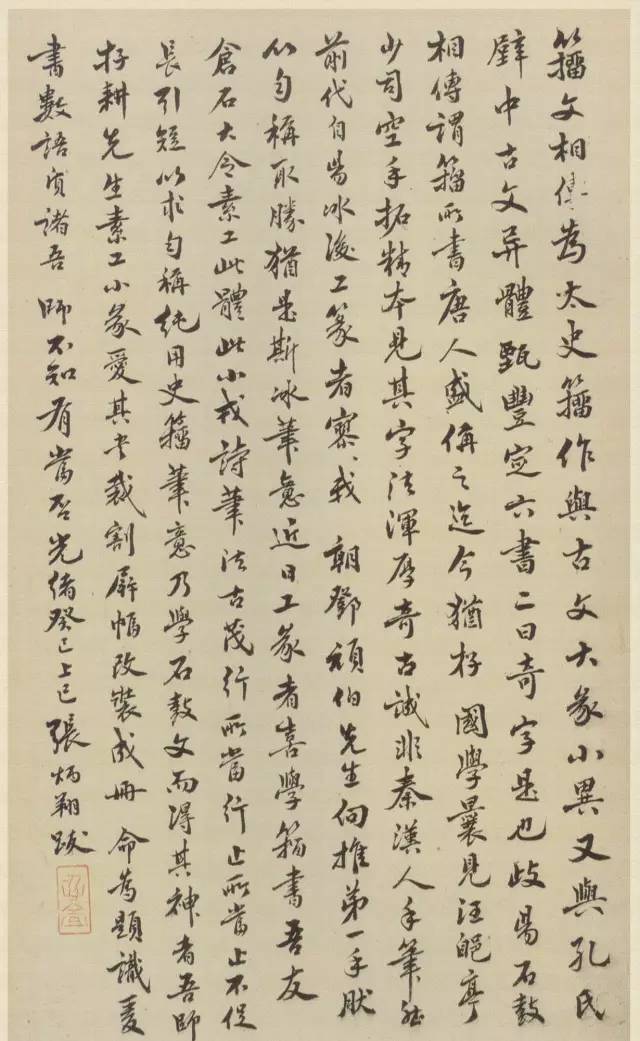 籒文相傳為太史籒作與古文大篆小異又與孔氏
壁中古文异體甄豐定六書二曰奇字是也歧陽石鼓
相傳謂籒所書唐人盛偁之迄今猶存國學曩見汪郋亭
少司空手拓精本見其字法渾厚奇古誠非秦漢人手筆
前代自陽冰後工篆者寥寥我朝鄧頑伯先生向推第一手肰
以勻稱取勝猶是斯冰筆意近日工篆者喜學籒書吾友
倉石大令素工此體此小戎詩筆法古茂行所當行止所當止不促
長引短以求勻稱純用史籒筆意乃學石鼓文而得其神者吾師
耔耕先生素工小篆愛其書裁割屏幅改裝成冊命為題識爰
書數語質諸吾師不知有當否光緒癸巳上巳張炳翔跋